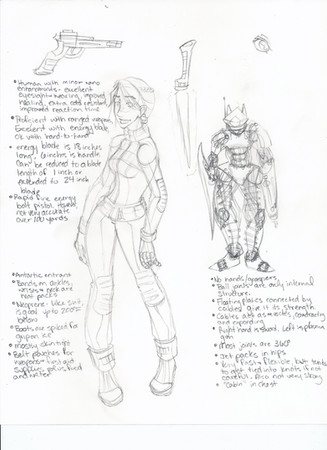 *Human with minor nano
enhancements - excellent
eyesight + hearing, improved
healing, extra cold resistant,
improved reaction time
*Proficient with ranged weapons,
Excellent with energy blade,
OK with hand-to-hand
*energy blade is 18 inches
long, 6 inches is handle
Can be reduced to a blade
length of 1 inch or
extended to 24 inch
blade
*Rapid fire energy
bolt pistol,
not very accurate
over 100 yards
*Antarctic entrant
*Bands on ankles,
wrists + neck are
not packs
*Neoprene-like suit,
is good up to 200°
below
*Boots are spiked for
grip on ice
*mostly skin tight
*Belt pouches for
weapons + first aid
supplies,
and water
*No hands/graspers,
*Ball joints are only internal
structure.
*Floating plates connected by
cables give it its strength
*Cables act as muscles, contracting
and expanding
*Right hand is sword, Left is plasma
gun
*Most joints are 360°
*Jet packs in hips
*Very fast + flexible, but tends
to get tied into knots if not
careful. Also not very strong
*"Cabin" in chest